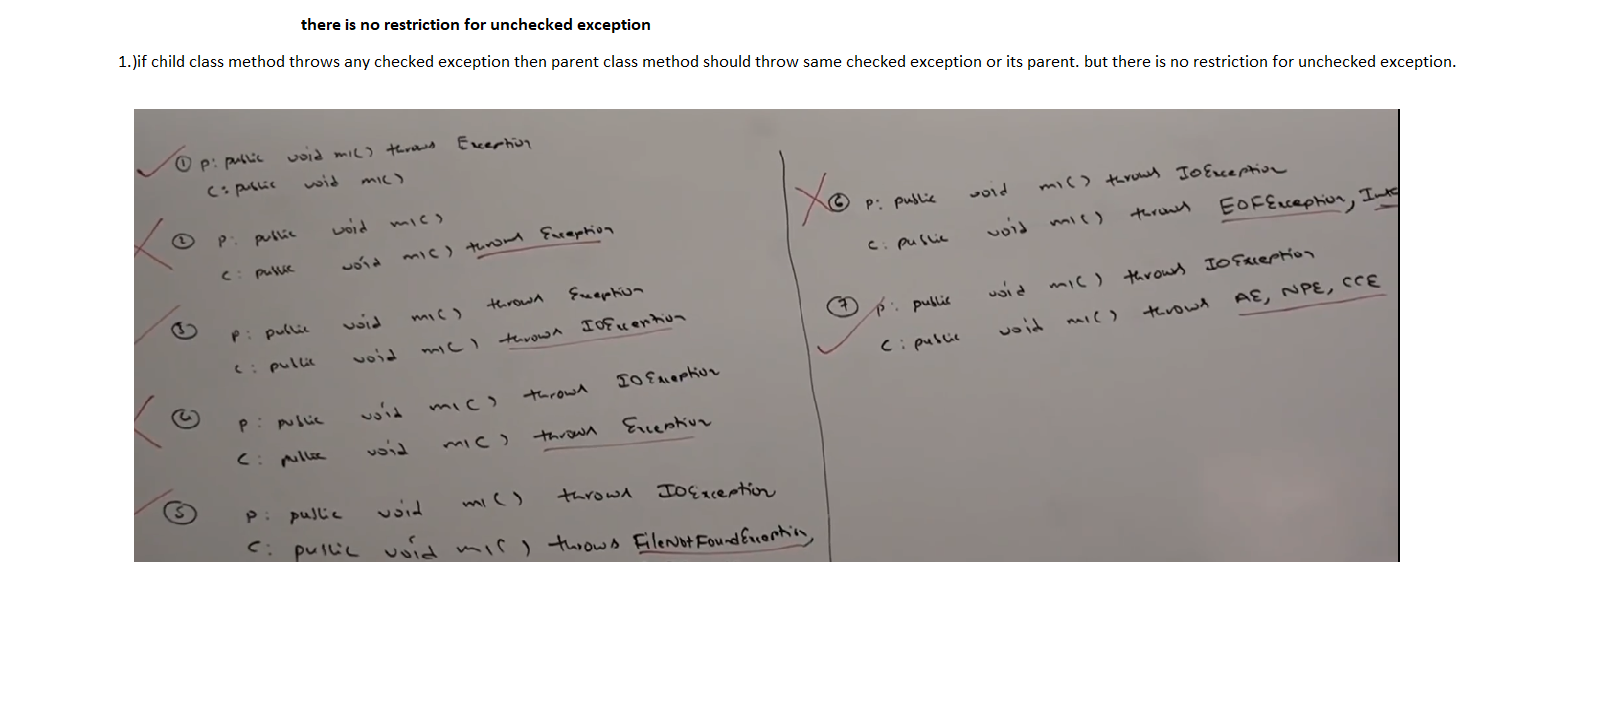 there is no restriction for unchecked exception
1.)if child class method throws any checked exception then parent class method should throw same checked exception or its parent. but there is no restriction for unchecked exception.
① P: public void m1() throws Exception
C: public void m1()
② P: public void m1()
C: public void m1() throws Exception
③ P: public void m1() throws Exception
C: public void m1() throws IOException
④ P: public void m1() throws IOException
C: public void m1() throws Exception
⑤ P: public void m1() throws IOException
C: public void m1() throws FileNotFoundException,
⑥ P: public void m1() throws IOException
C: public void m1() throws EOFException,
⑦ P: public void m1() throws IOException
C: public void m1() throws AE, NPE, CCE